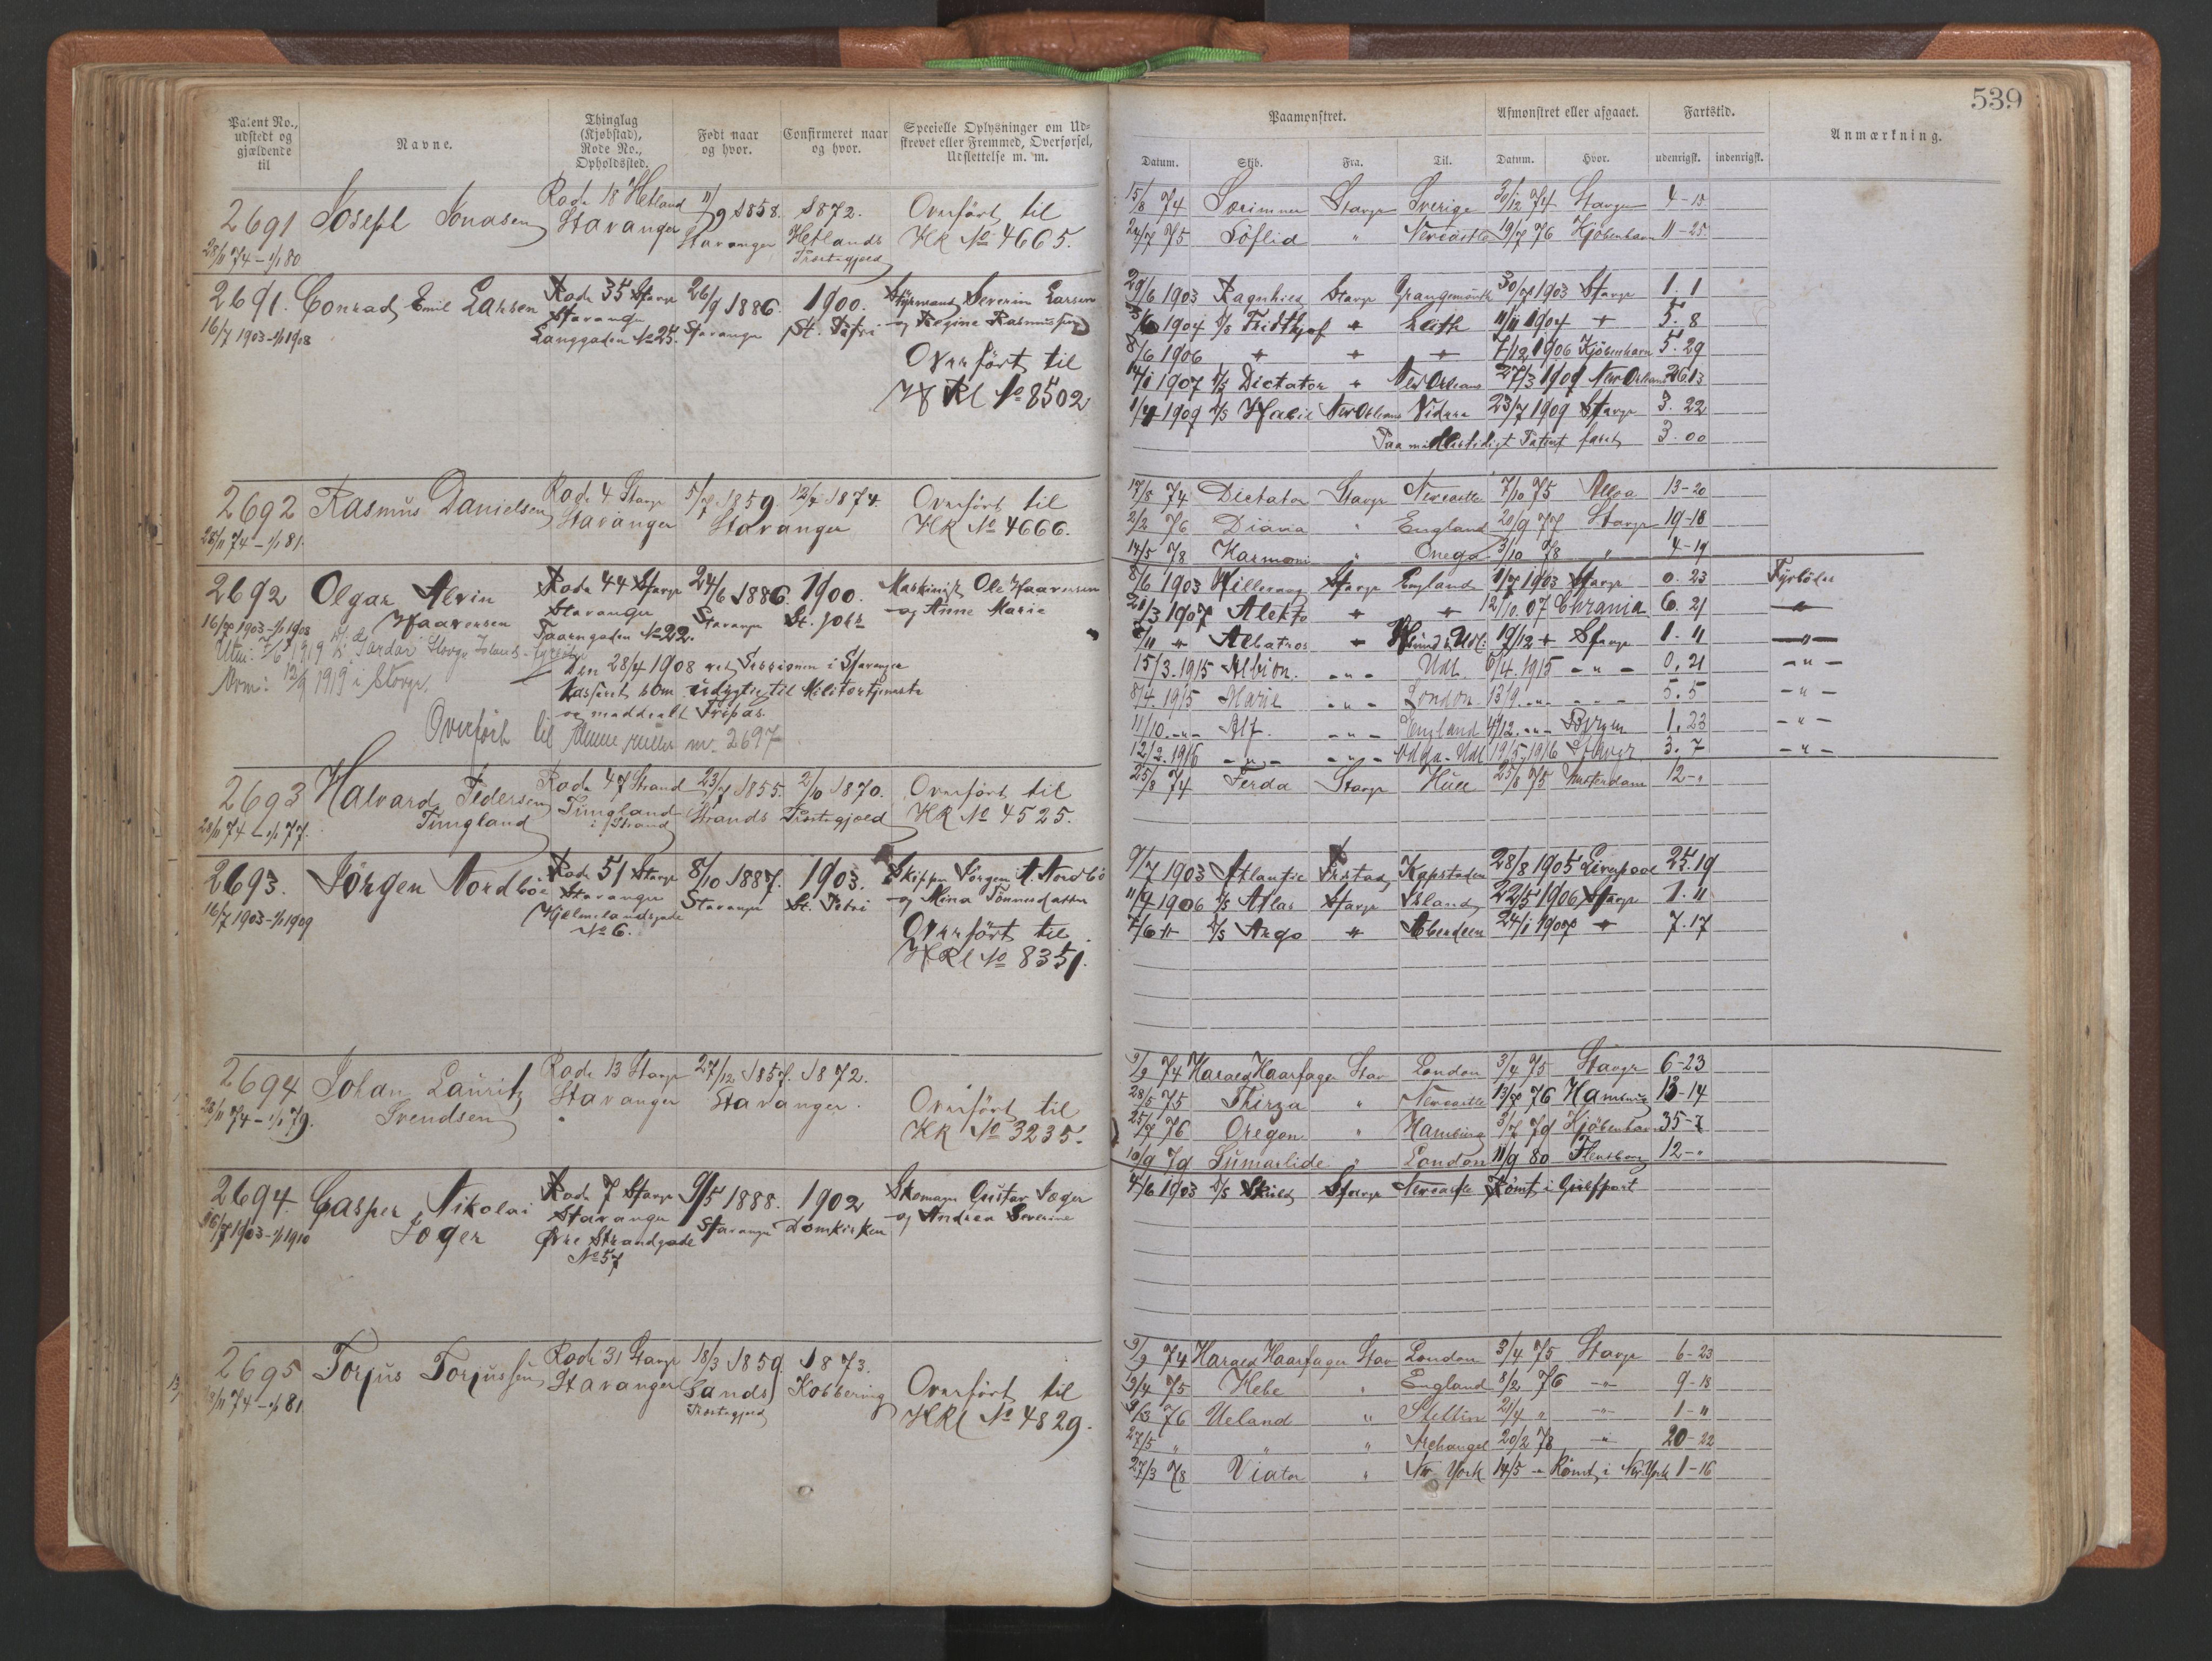 539
Patent No., udstedt og gjældende til
Navne.
Thinglag (Kjøbstad), Rode No., Opholdssted.
Født naar og hvor.
Confirmeret naar og hvor.
Specielle Oplysninger om Udskrevet eller Fremmed, Overførsel, Udslettelse m. m.
Paamønstret.
Afmønstret eller afgaaet.
Fartstid.
Anmærkning.
Datum. Skib. Fra. Til. Datum. Hvor. udenrigsk. indenrigsk.
2691 Joseph Jonasen Rode 18 Hetland 11/9 1858. 1872. Overført til
Stavanger Stavanger Hetlands HK No 4665.
28/11 74 - 1/1 80 Præstegjæld
15/8 74 Stavgr Sverige 30/12 74 Stavgr 4-15
24/7 75 " Newcastle 19/7 76 Kjøbenhavn 11-25
2691. Conrad Emil Larsen Rode 35 Stavgr 26/9 1886. 1900. Styrmand Severin Larsen
16/7 1903-1/1 1908 Stavanger Stavanger St. Petri og Regine Rasmussen
Langgaden No 25.
Overført til
HKl No 8502
29/6 1903 Ragnhild Stavgr Grangemouth 30/7 1903 Stavgr 1.1
1904 D/S Fridthjof " Leith 11/11 1904 " 5.8
8/6 1906 " " " 7/12 1906 Kjøbenhavn 5.29
14/1 1907 D/S Dictator " New Orleans 27/3 1909 New Orleans 26.13
1/4 1909 D/S New Orleans 23/7 1909 Stavgr 3.22
Paa midlertidigt Patent faret 3.00
2692 Rasmus Danielsen Rode 4 Stavgr 5/7 1859 12/4 1874. Overført til
Stavanger Stavanger HK No 4666.
28/11 74 - 1/1 81.
17/8 74 Dictator Stavgr Newcastle 7/10 75 Alloa 13-20
2/2 76 Diana " England 20/9 77 Stavgr 19-18
14/5 78 Karmoni " Onega 3/10 78 " 4-19
2692 Olgar Alvin Rode 44 Stavgr 24/6 1886. 1900. Maskinist Ole Haavorsen
Haavorsen Stavanger Stavanger St. Johs og Anne Marie
16/7 1903-1/1 1908 Taarngaden No 22.
Den 28/4 1908 ved Sessionen i Stavanger
kasseret som udygtig til Militærtjeneste
og meddelt Fripas.
12/9 1919 i Stavgr.
Overført til nr. 2697
8/6 1903 Stavgr England 1/7 1903 Stavgr 0.23 Fyrbøder
21/3 1907 Alekto " " 12/10 07 Chrania 6.21 "
Albatros " 19/12 " Stavgr 1.11 "
15/3.1915 Albion. -"- Udl. 6/4.1915 -"- 0.21 -"-
8/4.1915 Marie -"- London 13/9.-"- 5.5 -"-
11/10.-"- Alf. -"- England 4/12.-"- Bergen 1.23 -"-
12/2.1916 -"- -"- Udl 19/5.1916 Stavgr. 3.7 -"-
2693 Halvard Pedersen Rode 47 Strand 23/7 1855. 2/10 1870. Overført til
Tungland Tungland i Strand Strands Præstegjæld HK No 4525.
28/11 74 - 1/1 77.
25/8 74 Ferda Stavgr Hull 25/8 75 Amsterdam 12-"
2693. Jørgen Nordbøe Rode 51 Stavgr 8/10 1887. 1903. Skipper Jørgen A. Nordbø
16/7 1903-1/1 1909 Stavanger Stavanger St. Petri og Mina Tønnesdatter
Hjelmelandsgade No 6.
Overført til
HKl No 8351.
9/7 1903 Atlantic Frstad, Kapstaden 28/8 1905 Liverpool 25.19
11/4 1906 D/S Atlas Stavgr Island 22/5 1906 Stavgr 1.11
7/6 " D/S Argo " Aberdeen 24/1 1907 " 7.17
2694 Johan Lauritz Rode 13 Stavgr 27/12 1857. 1872.
Svendsen Stavanger Stavanger.
28/11 74 - 1/1 79.
Overført til
HK No 3235.
9/9 74 Harald Haarfager Stav London 3/4 75 Stavgr 6-23
28/5 75 Thirza " Newcastle 13/7 76 Hamburg 13-14
25/7 76 Oregon " Hamburg 3/7 79 Kjøbenhavn 35-7
10/9 79 Sumarlide " London 11/9 80 Flensborg 12-"
2694. Casper Nikolai Rode 7 Stavgr 9/5 1888. 1902 Skomager Gustav Joger
Joger Stavanger Stavanger Domkirken og Andrea Severine
16/7 1903-1/1 1910 Øvre Strandgade
No 57
4/6 1903 D/S Skuld Stavgr Newcastle Rømt i Gulfport
2695 Torjus Torjussen Rode 31 Stavgr 18/3 1859. 1873.
Stavanger Sands Kobbering
Præstegjæld
28/11 74 - 1/1 81
Overført til
HKl No 4829.
9/9 74 Harald Haarfager Stav London 3/4 75 Stavgr 6-23
9/4 75 Hebe " England 8/2 76 -"- 9-18
9/3 76 Ueland " Stettin 21/4 " -"- 1-11
27/5 " " " Archangel 20/2 78 -"- 20-22
27/3 78 Viator " New York 14/5 - Rømt i New York 1-16